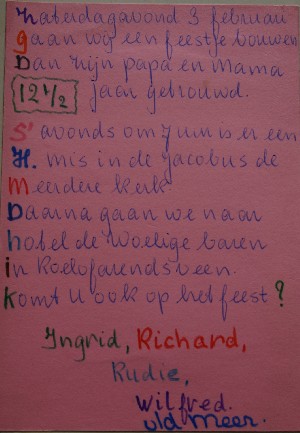 Zaterdagavond 3 februari
gaan wij een feestje bouwen
Dan zijn papa en mama
12 1/2 jaar getrouwd.
S' avonds om 7 uur is er een
H. mis in de Jacobus de
Meerdere kerk
Daarna gaan we naar
hotel de Woelige baren
in Roelofarendsveen.
komt U ook op het feest?
Ingrid, Richard,
Rudie,
Wilfred.
v/d Meer.